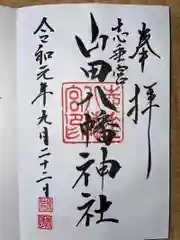 奉拝
志乗宮
山田八幡神社
令和元年九月二十二日